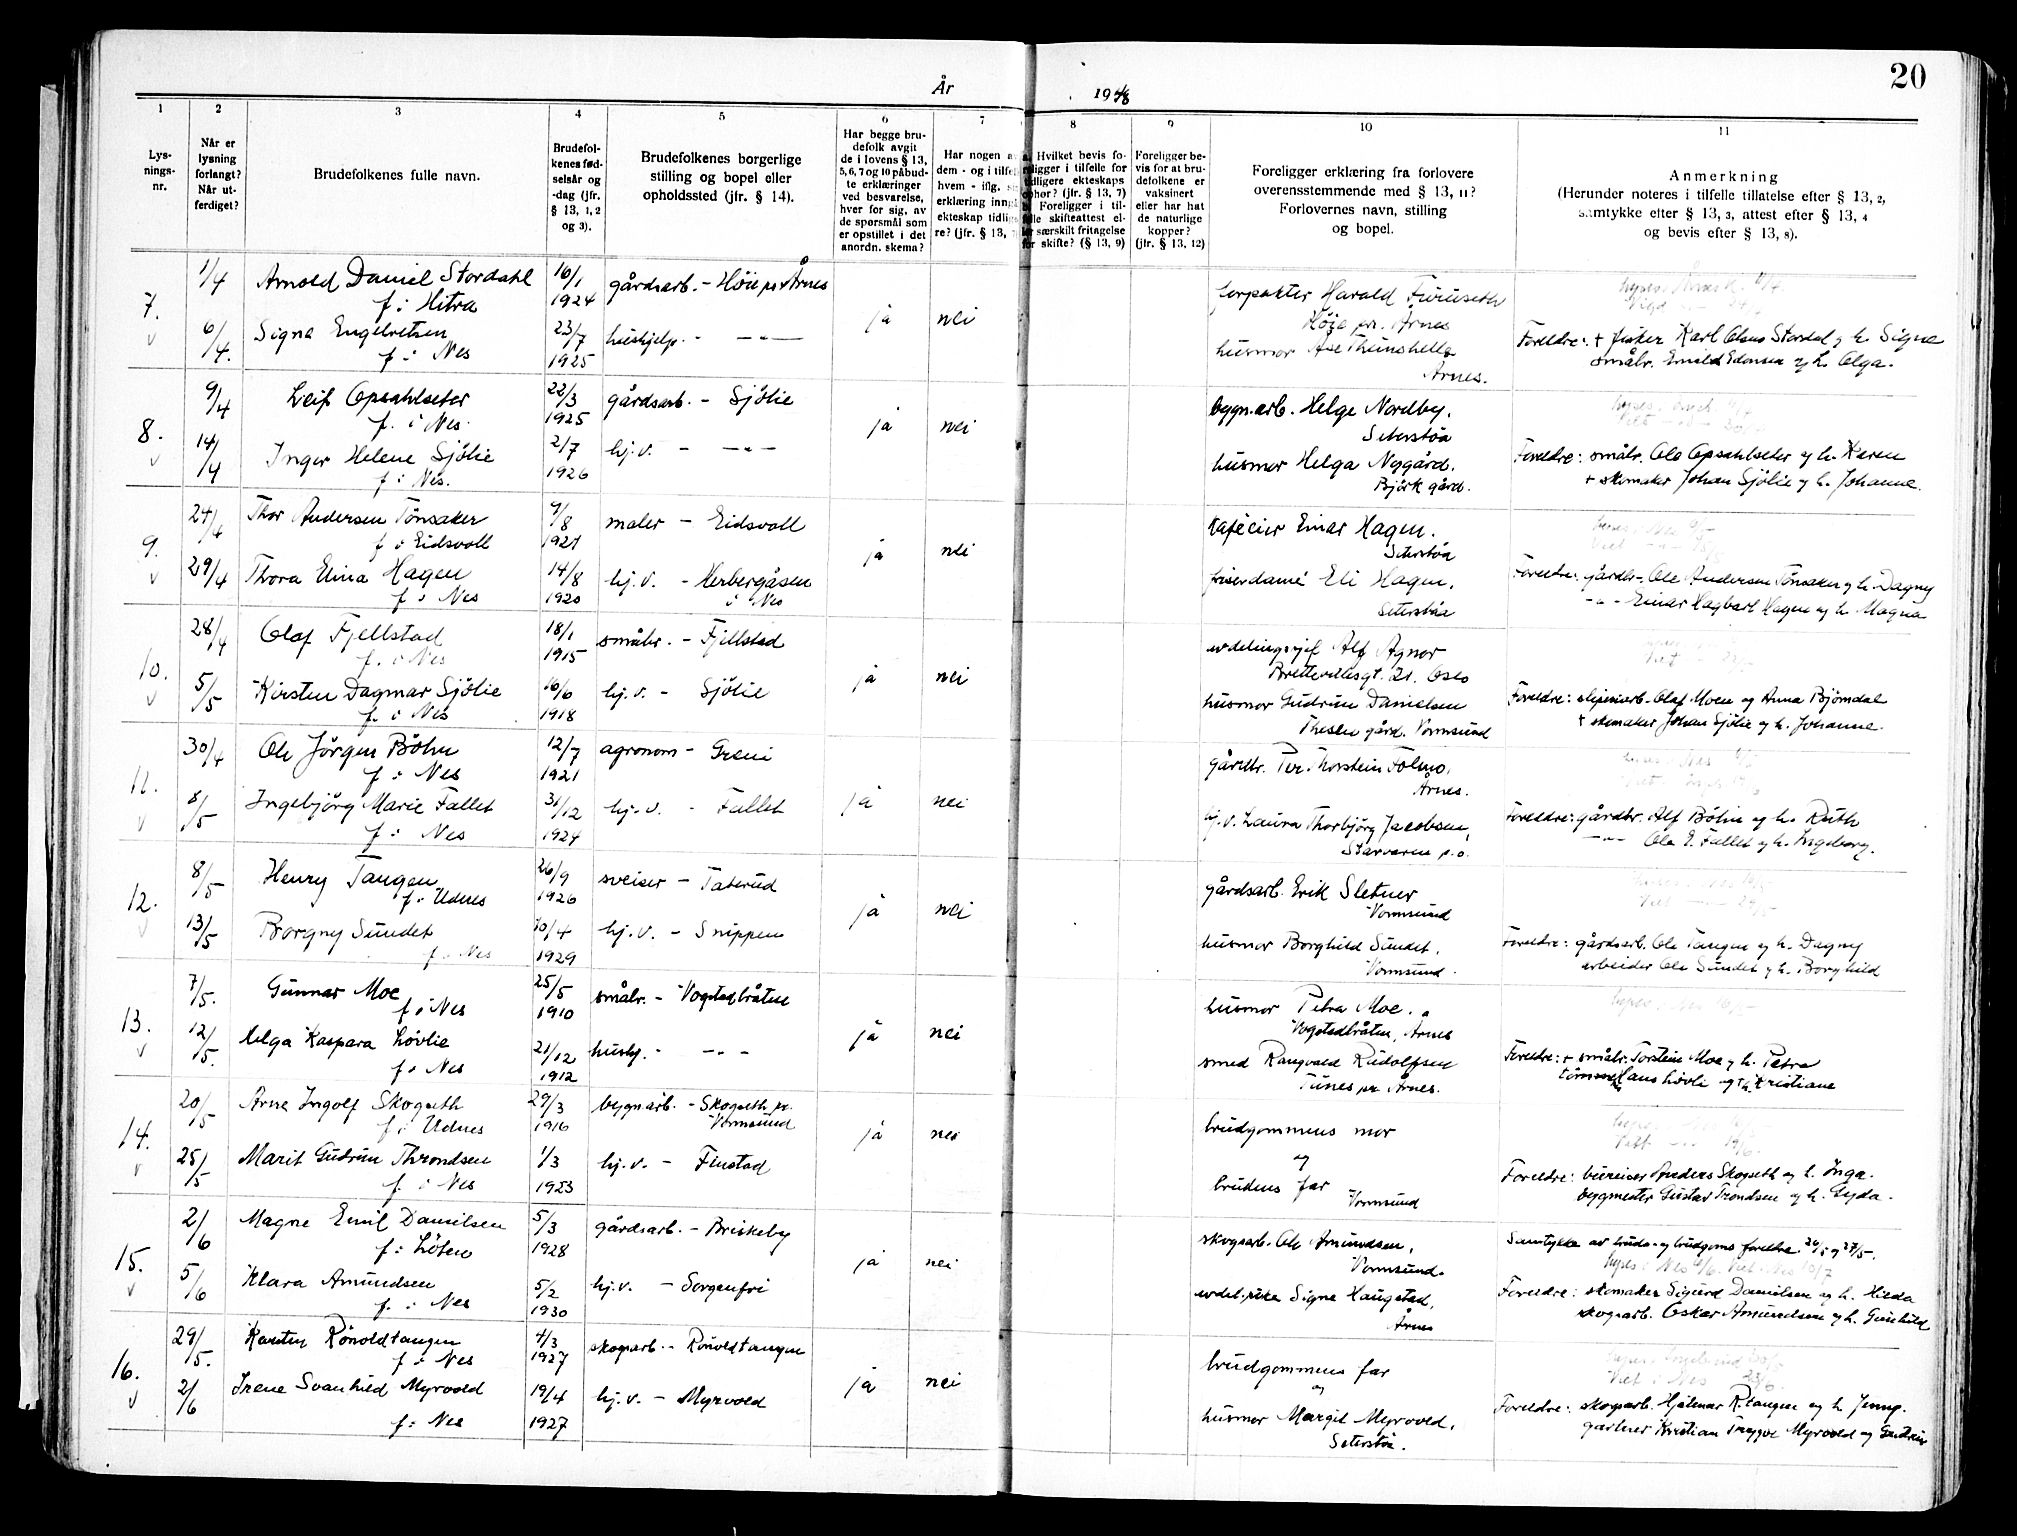 20
År 1948
1 2 3 4 5 6 7 8 9 10 11
Lys-
nings-
nr.
Når er
lysning
forlangt?
Når ut-
ferdiget?
Brudefolkenes fulle navn.
Brudefol-
kenes fød-
selsår og
-dag (jfr.
§ 13, 1, 2
og 3).
Brudefolkenes borgerlige
stilling og bopel eller
opholdssted (jfr. § 14).
Har begge bru-
defolk avgit
de i lovens § 13,
5, 6, 7 og 10 påbud-
te erklæringer
ved besvarelse,
hver for sig, av
de spørsmål som
er opstillet i det
anordn. skema?
Har nogen a
dem - og i tilfel
hvem - iflg. s
erklæring inng
ekteskap tidlig
re? (jfr. § 13,
Hvilket bevis fo-
religger i tilfelle for
tidligere ekteskaps
ophør? (jfr. § 13, 7)
Foreligger i til-
felle skifteattest el-
ler særskilt fritagelse
for skifte? (§ 13, 9)
Foreligger be-
vis for at bru-
defolkene er
vaksinert
eller har hat
de naturlige
kopper?
(jfr. § 13, 12)
Foreligger erklæring fra forlovere
overensstemmende med § 13, 11?
Forlovernes navn, stilling
og bopel.
Anmerkning
(Herunder noteres i tilfelle tillatelse efter § 13, 2,
samtykke efter § 13, 3, attest efter § 13, 4
og bevis efter § 13, 8).
7. 1/4 Arnold Daniel Stordahl 16/1 gårdsarb. - Höie pr Årnes ja nei forpakter Harald Furuseth
f. i Hitra 1924 Höie pr. Årnes
6/4. Signe Engebretsen 23/7 hushjelp. - -"- husmor Åse Foreldre: + fisker Karl Olaus Stordal og h. Signe
f. i Nes 1925 Årnes. småbr. og h. Olga.
8. 9/4 Leif Opsahlseter 22/3 gårdsarb. - Sjölie ja nei bygn.arb. Helge Nordby,
f. i Nes. 1925 Seterstöa
14/4 Inger Helene Sjölie 2/7 hj.v. - -"- husmor Helga Nygård, Foreldre: småbr. Ole Opsahlseter og h. Karen
f. i Nes. 1926 Björk gård. + skomaker Johan Sjölie og h. Johanne.
9. 24/4 Thor Andersen Tönsaker 9/8 maler - Eidsvoll ja nei kaféeier Einar Hagen.
f. i Eidsvoll 1921 Seterstöa
29/4 Thora Elina Hagen 14/8 hj.v. - Herbergåsen friserdame Eli Hagen, Foreldre: gårdbr. Ole Andersen Tönsaker og h. Dagny
f. i Nes 1920 i Nes Seterstöa -"- Einar Hagbart Hagen og h. Magna
10. 28/4 Olaf Fjellstad 18/1 småbr. - Fjellstad ja nei avdelingssjef Alf Agnor
f. i Nes 1915 21. Oslo
5/5 Kirsten Dagmar Sjölie 16/6 hj.v. - Sjölie husmor Gudrun Danielsen Foreldre: Olaf Moen og Anna Bjömdal
f. i Nes 1918 Theslu gård. Vormsund + skomaker Johan Sjölie og h. Johanne.
11. 30/4 Ole Jörgen Böhn 12/7 agronom - Greni ja nei gårdbr. Per Thorstein Folmo,
f. i Nes 1921 Årnes.
8/5 Ingebjörg Marie Fallet 31/12 hj.v. - Fallet hj.v. Laura Thorbjörg Jacobsen, Foreldre: gårdbr. Alf Böhn og h. Ruth
f. i Nes 1924 p.o. -"- Ole E. Fallet og h. Ingeborg.
12. 8/5 Henry Tangen 26/9 sveiser - Taterud ja nei gårdsarb. Erik Sletner
f. i Udnes 1926 Vormsund
13/5 Borgny Sundet 10/4 hj.v. - Snippen husmor Borghild Sundet, Foreldre: gårdsarb. Ole Tangen og h. Dagny
f. i Nes 1929 Vormsund. arbeider Ole Sundet og h. Borghild
13. 7/5. Gunnar Moe 25/5 småbr. - Vogstadbråten ja nei husmor Petra Moe.
f. i Nes 1910 Vogstadbråten, Årnes
12/5. Helga Kaspara Lövlie 21/12 hushj. - -"- smed Rangvald Rudolfsen Foreldre: + småbr. Torstein Moe og h. Petra
f. i Nes 1912 Tunes pr. Årnes. Hans Lövli og h. Kristiane
14. 20/5 Arne Ingolf Skogseth 29/3 bygnarb. - Skogseth pr. ja nei brudgommens mor
f. i Udnes 1916 Vormsund
25/5 Marit Gudrun Throndsen 1/3 hj.v. - Finstad og brudens far Foreldre: Anders Skogseth og h. Inga.
f. i Nes 1923 Vormsund bygmester Gustav Trondsen og h. Gyda.
15. 2/6 Magne Emil Danielsen 5/3 gårdsarb. - Briskeby ja nei skogsarb. Ole Amundsen, Samtykke av bruds- og brudgoms foreldre 26/5 og 27/5.
f. i Löten 1928 Vormsund.
5/6 Klara Amundsen 5/2 hj.v. - Sorgenfri Signe Haugstad, Foreldre: skomaker Sigurd Danielsen og h. Hilda
f. i Nes 1930 Årnes skogsarb. Oskar Amundsen og h. Gunhild
16. 29/5. Karsten Rönoldtangen 4/3 skogsarb. - Rönoldtangen ja nei brudgommens far
f. i Nes 1927 og
2/6 Irene Svanhild Myrvold 19/4 hj.v. - Myrvold husmor Margit Myrvold, Foreldre: skogsarb. Hjalmar R.tangen og h. Jenny.
f. i Nes 1927 Seterstöa. gartner Kristian Trygve Myrvold og Gudrun